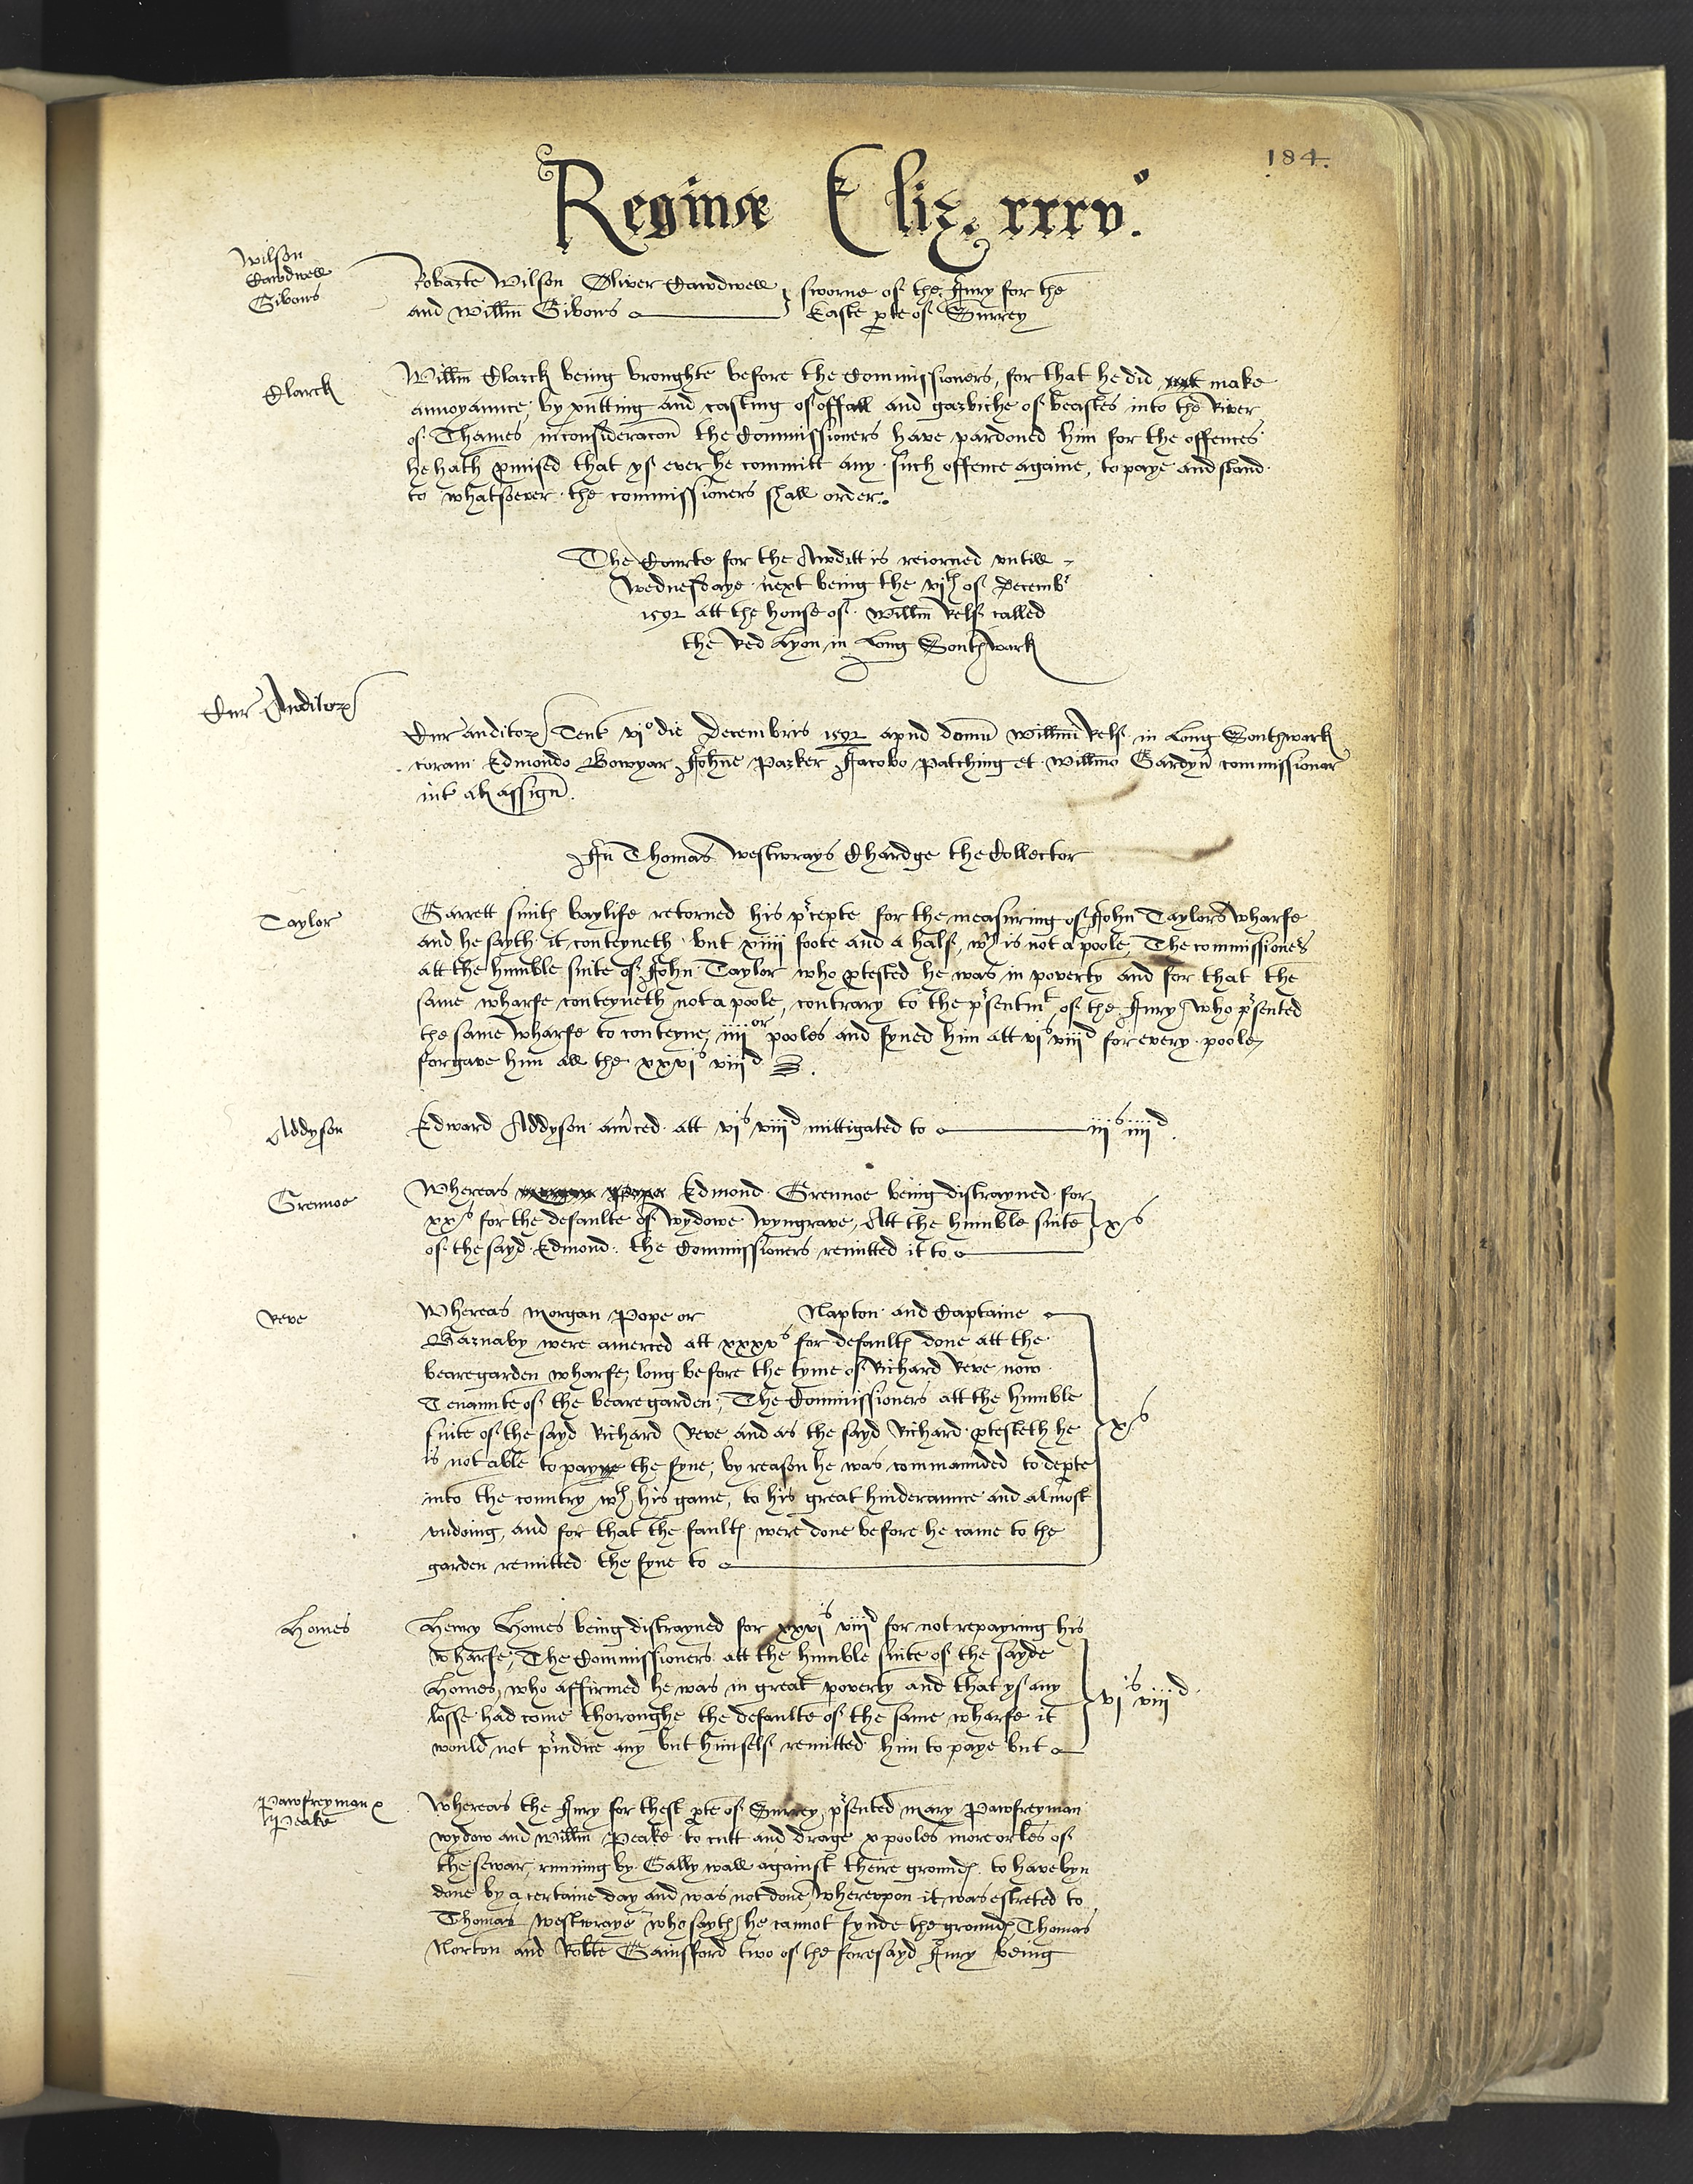 184.
Reginæ Eliz. xxxvº.
Wilson
Cawdwell
Gibons
Robarte Wilson Oliver Cawdwell } sworne of the Jury for the
and Willm Gibons } Easte pte of Surrey
Clarck
Willm Clarck being broughte before the Commissioners, for that he did make
annoyaunce, by putting and casting of offall and garbiche of beastes into the River
of Thames inconsideracon the Commissioners have pardoned him for the offences
he hath pmised that yf ever he committ any such offence againe, to paye and stand
to whatsoever the commissioners shall order.
The Courte for the Awditt is reiorned untill
Wednesdaye next being the vjth of Decembr
1592 att the house of Willm Relf called
the Red Lyon in Long Southwark
Cur Auditor
Cur auditor Tent vjº die Decembris 1592 apud domu Willmi Relf in Long Southwark
coram Edmondo Bowyar Johne Parker Jacobo Patching et Willmo Gardyn commissionar
int al assign.
In Thomas Westwrays Chardge the Collector
Taylor
Garrett Smith baylife retorned his pcepte for the measuring of John Taylors wharfe
and he sayth it conteyneth but xiiij foote and a half, wch is not a poole, The commissioners
att the humble suite of John Taylor who ptested he was in poverty and for that the
same wharfe conteyneth not a poole, contrary to the psentmt of the Jury, who psented
the same wharfe to conteyne iiijor pooles and fyned him att vjs viijd for every poole,
forgave him all the xxvjs viijd.
Addyson
Edward Addyson amced att vjs viijd mittigated to iijs iiijd.
Grennoe
Whereas Edmond Grennoe being distrayned for
xxs for the defaulte of wydowe Wyngrave, Att the humble suite } xs
of the sayd Edmond the Commissioners remitted it to
Reve
Whereas Morgan Pope or Napton and Captaine
Barnaby were amerced att xxxvs for defaultes done att the
bearegarden wharfe, long before the tyme of Richard Reve now
Tenaunte of the bearegarden, The Commissioners att the humble
suite of the sayd Richard Reve and as the sayd Richard ptesteth he } xs
is not able to paye the fyne, by reason he was commaunded to depte
into the country wth his game, to his great hinderaunce and almost
undoing, and for that the faultes were done before he came to the
garden remitted the fyne to
Homes
Henry Homes being distrayned for xxvjs viijd for not repayring his
wharfe, The Commissioners att the humble suite of the sayde
Homes, who affirmed he was in great poverty and that yf any } vjs viijd
losse had come thoroughe the defaulte of the same wharfe it
would not piudice any but himself remitted him to paye but
Pawfreyman &
Peake
Whereas the Jury for thest pte of Surrey, psented Mary Pawfreyman
wydow and Willm Peake to cutt and drage x pooles more or les of
the sewar, running by Gally wall against theire groundes to have byn
done by a certaine day and was not done, whereupon it was estreted to
Thomas Westwraye who sayth he cannot fynde the groundes, Thomas
Norton and Robte Gainsford two of the foresayd Jury being